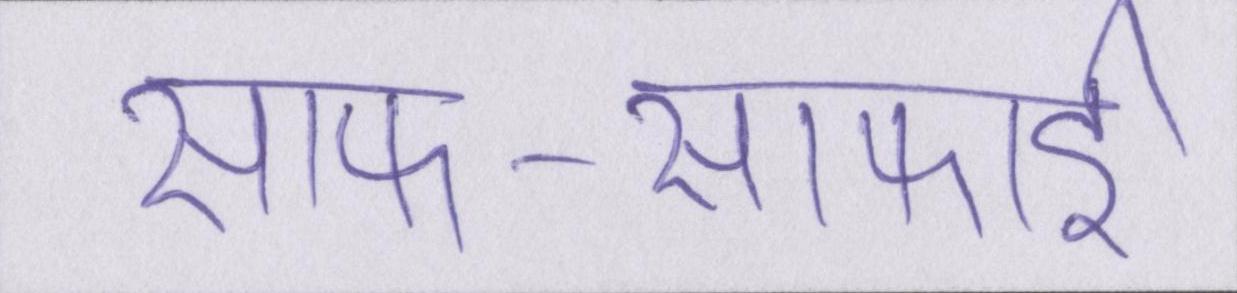 साफ-साफाई